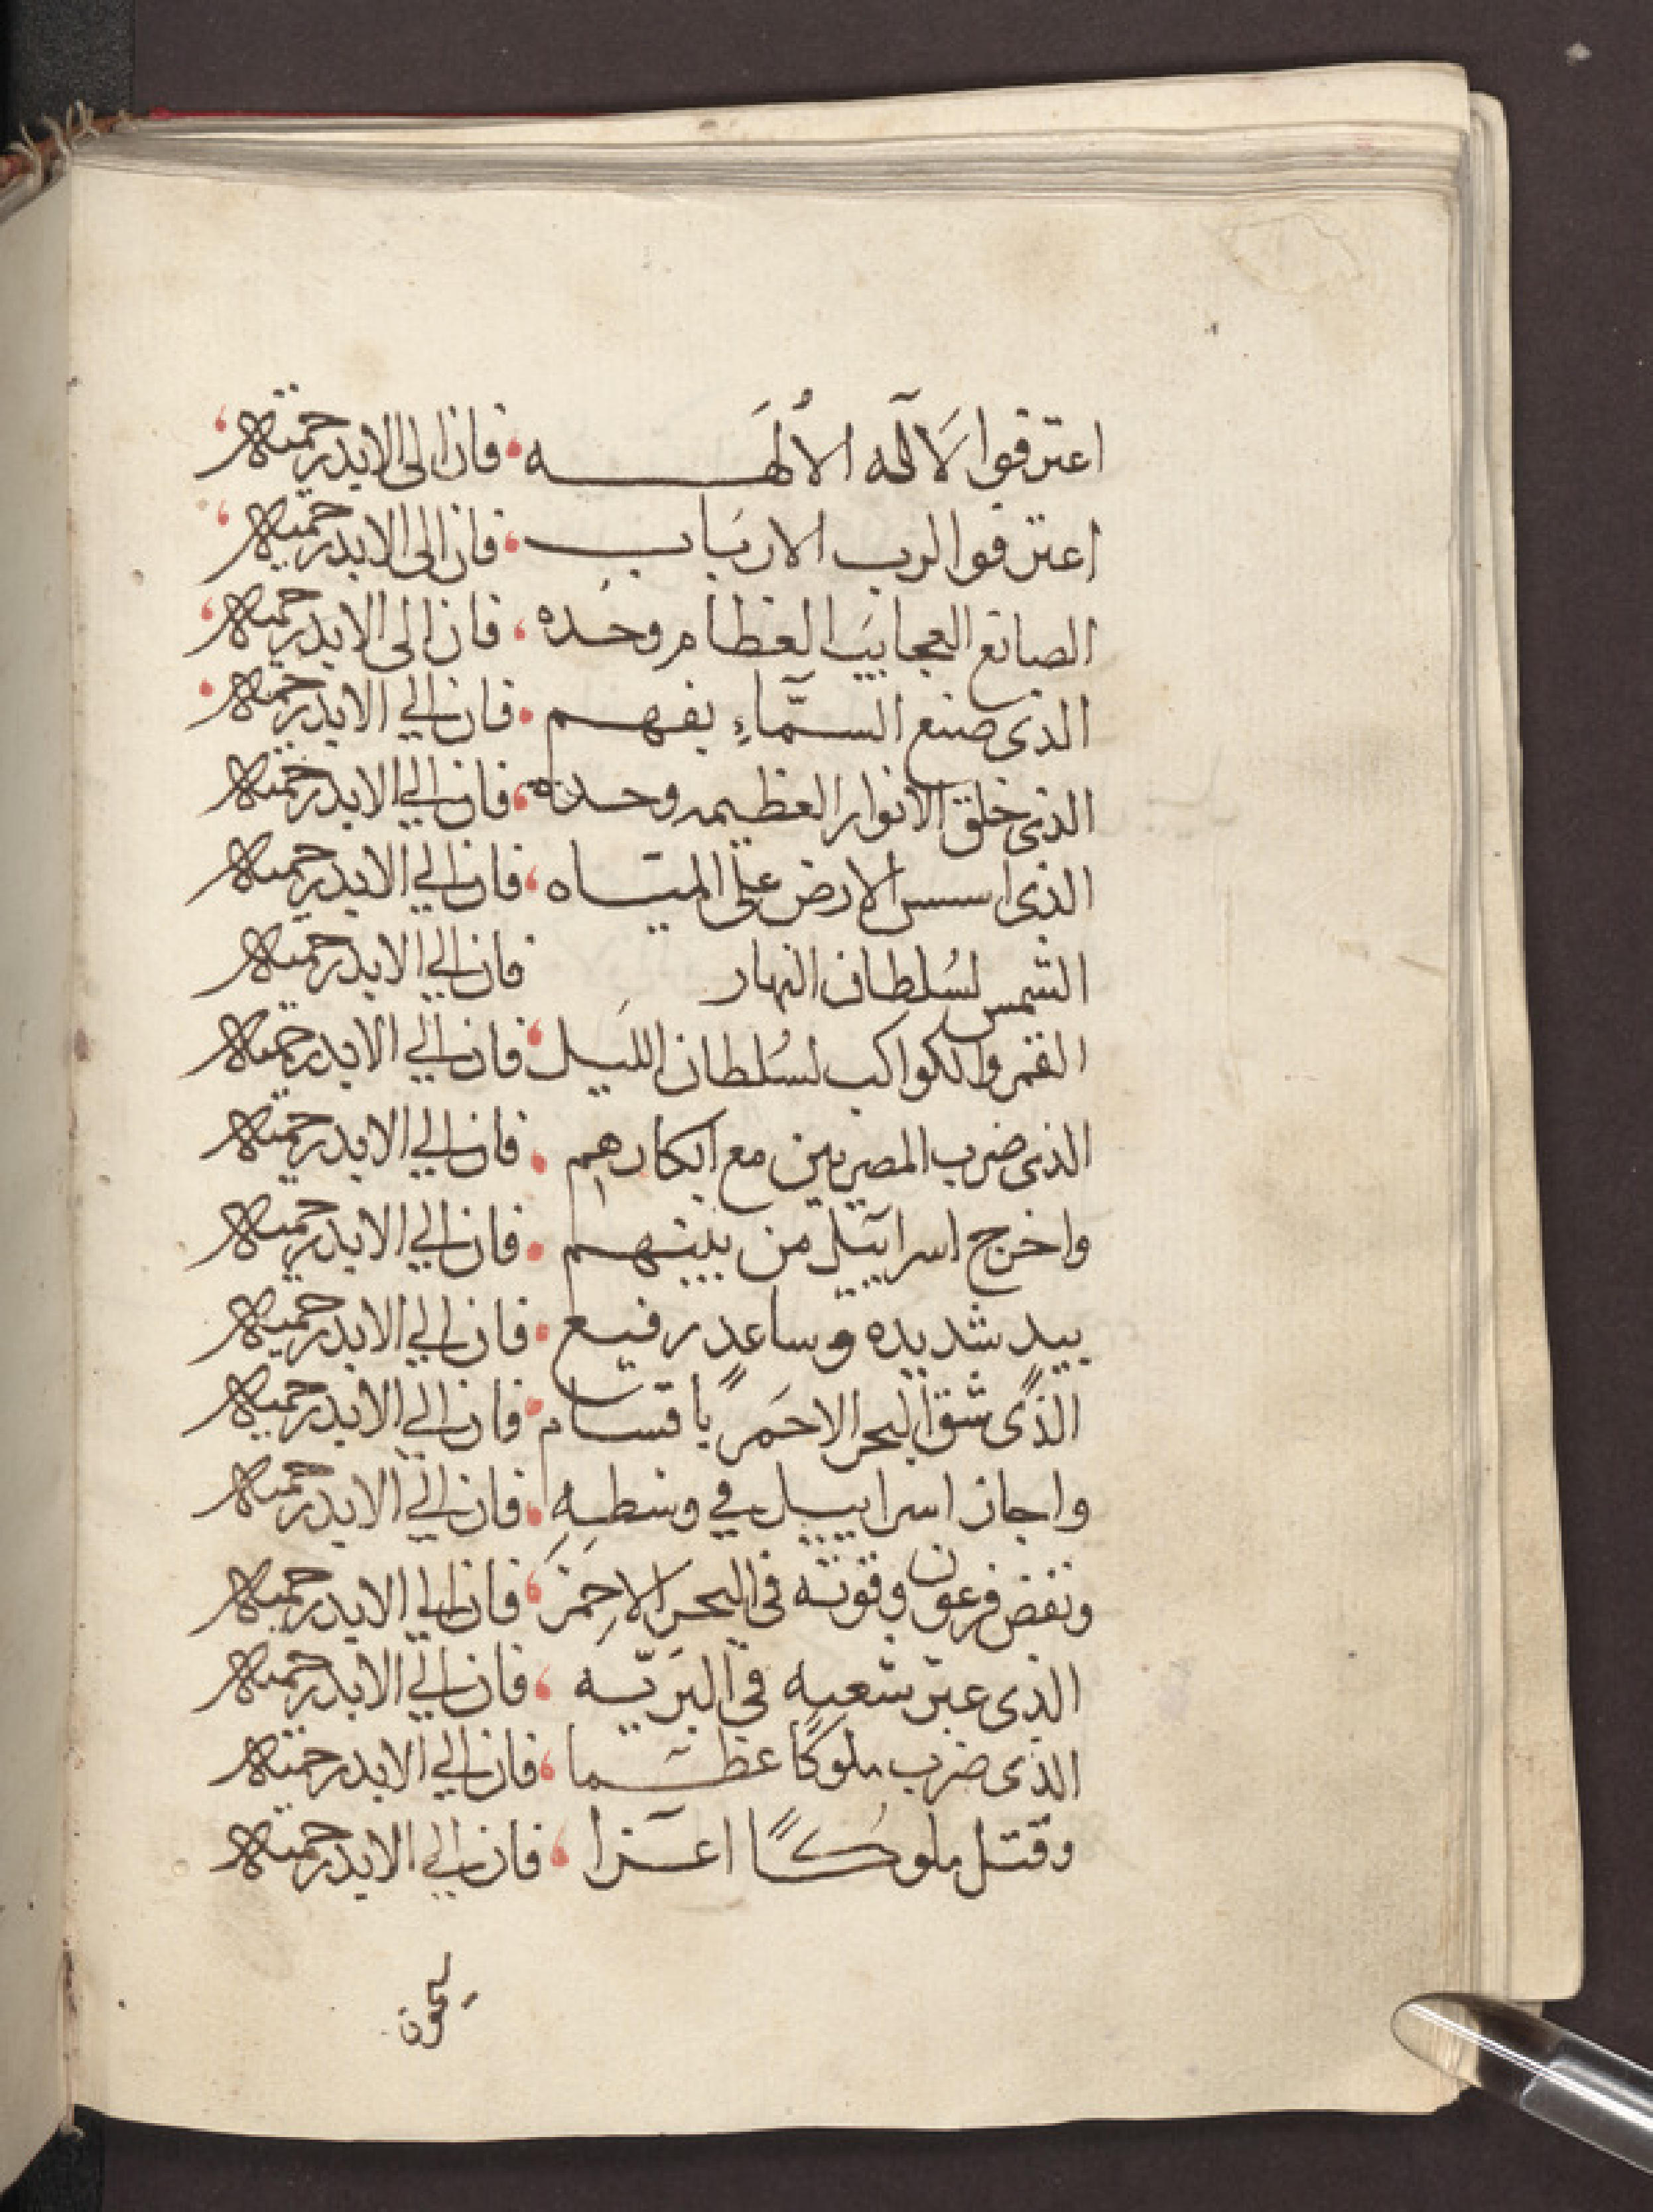 اعترفوا لاله الالهه فان الى الابد رحمته
اعترفوا لرب الارباب فان الى الابد رحمته
الصانع العجايب العظام وحده فان الى الابد رحمته
الذى صنع السمآء بفهم فان الي الابد رحمته
الذى خلق الانوار العظيمه وحده فان الي الابد رحمته
الذى اسس الارض على المياه فان الي الابد رحمته
الشمس لسُلطان النهار فان الي الابد رحمته
القمر والكواكب لسُلطان الليل فان الي الابد رحمته
الذى ضرب المصريين مع ابكارهم فان الي الابد رحمته
واخرج اسراييل من بينهم فان الي الابد رحمته
بيد شديده وساعد رفيع فان الي الابد رحمته
الذى شق البحر الاحمر باقسام فان الي الابد رحمته
واجاز اسراييل في وسطه فان الي الابد رحمته
ونفض فرعون وقوته فى البحر الاحمر فان الي الابد رحمته
الذى عبر شعبه في البريّه فان الي الابد رحمته
الذى ضرب ملوكًا عظما فان الي الابد رحمته
وقتل ملوكًا اعزا فان الي الابد رحمته